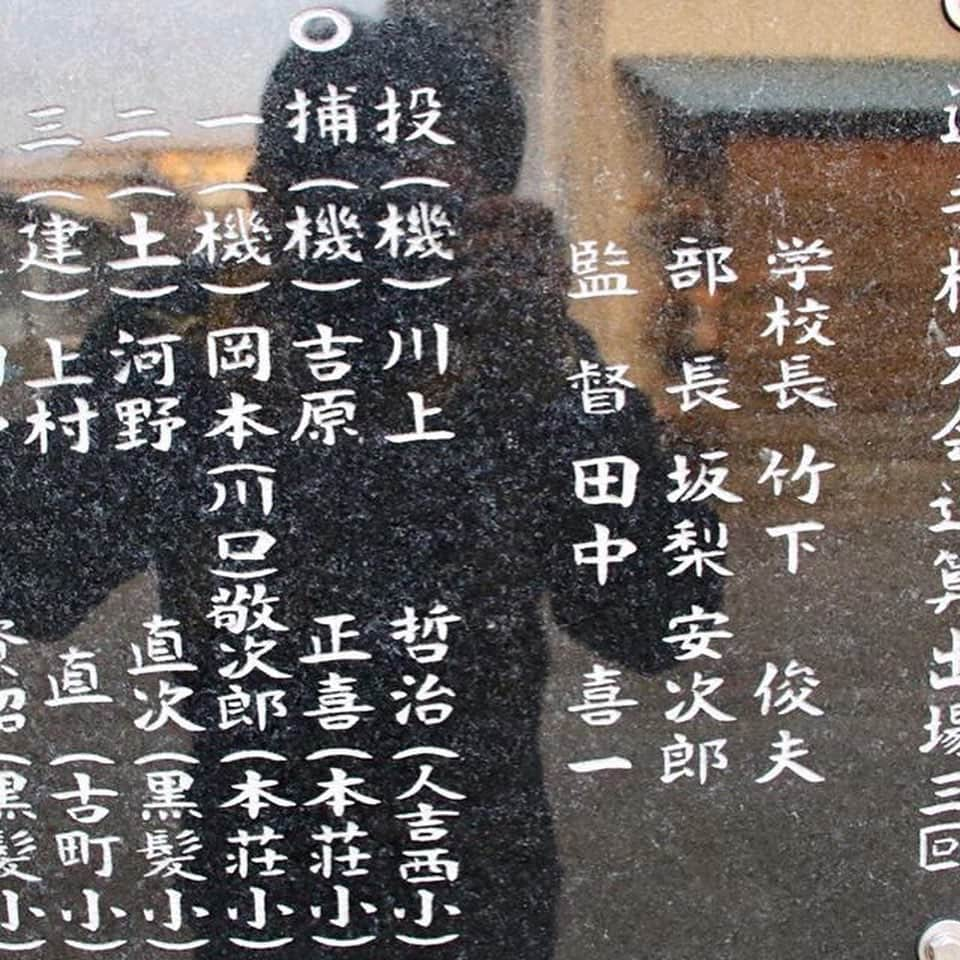 出場三回
学校長 竹下 俊夫
部長 坂梨 安次郎
監督 田中 喜一
投(機)川上 哲治(人吉西小)
捕(機)吉原 正喜(本荘小)
一(機)岡本(川口)敬次郎(本荘小)
二(土)河野 直次(黒髪小)
三(建)上村 直(古町小)
黒髪小)